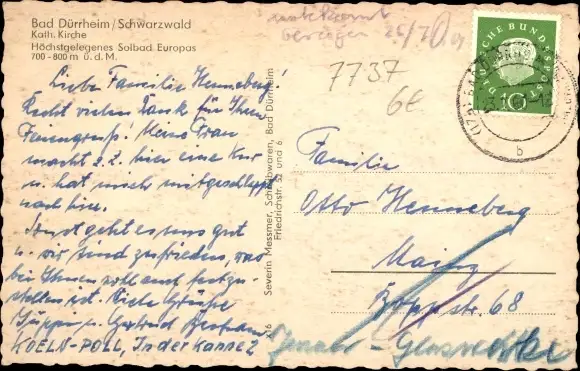 Bad Dürrheim/Schwarzwald
Kath. Kirche
Höchstgelegenes Solbad Europas
700-800 m ü. d. M.
Liebe Familie Henneberg!
Recht vielen Dank für Ihren
Feriengruß! Meine Frau
macht z.Z. hier eine Kur
u. hat mich mitgeschleppt
nach hier.
Sonst geht es uns gut
u. wir sind zufrieden, was
bei Ihnen wohl auch festzu-
stellen ist. Viele Grüße
Jüppi u. Gertrud
KOELN-POLL, In der Kanne 2
Severin Messmer, Schreibwaren, Bad Dürrheim
Friedrichstr. 52 und 6
26/7
7737
6€
DEUTSCHE BUNDESPOST
10
b
Familie
Otto Henneberg
Mainz
Boppstr. 68